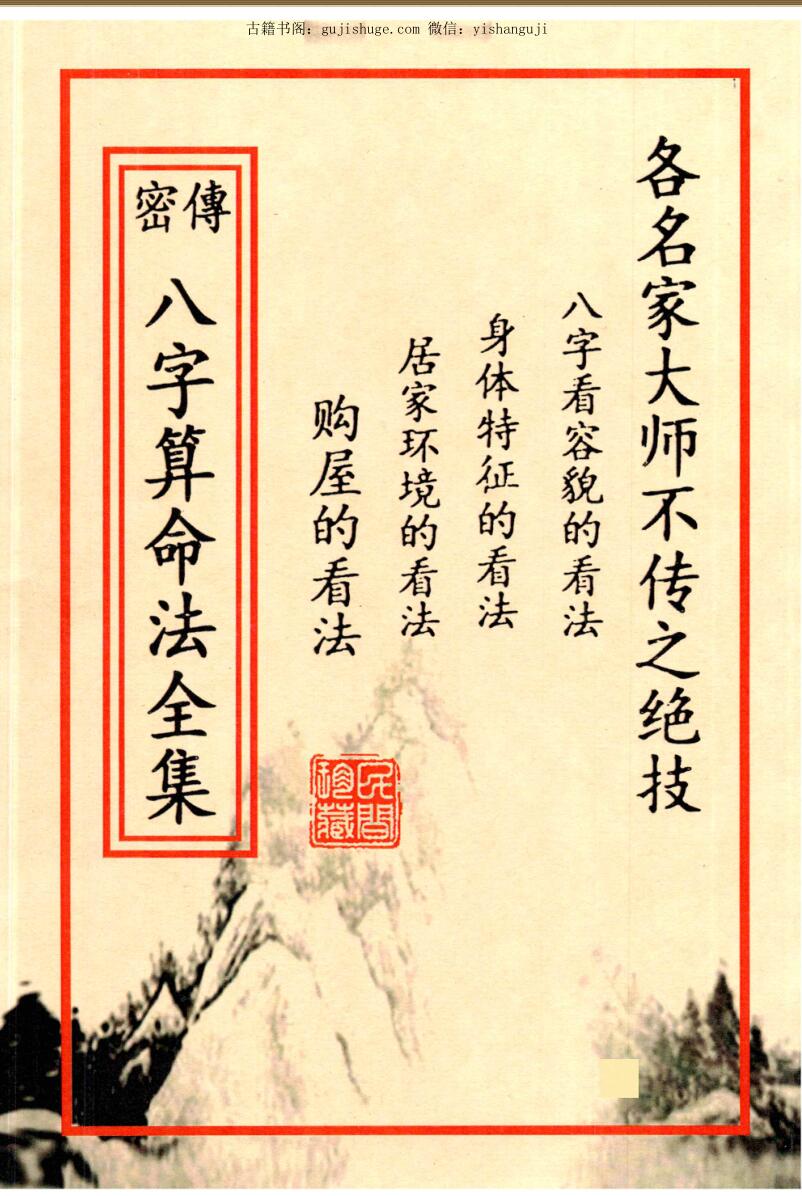 古籍书阁：gujishuge.com 微信：yishanguji
各名家大师不传之绝技
八字看容貌的看法
身体特征的看法
居家环境的看法
购屋的看法
傳密
八字算命法全集
民間珍藏